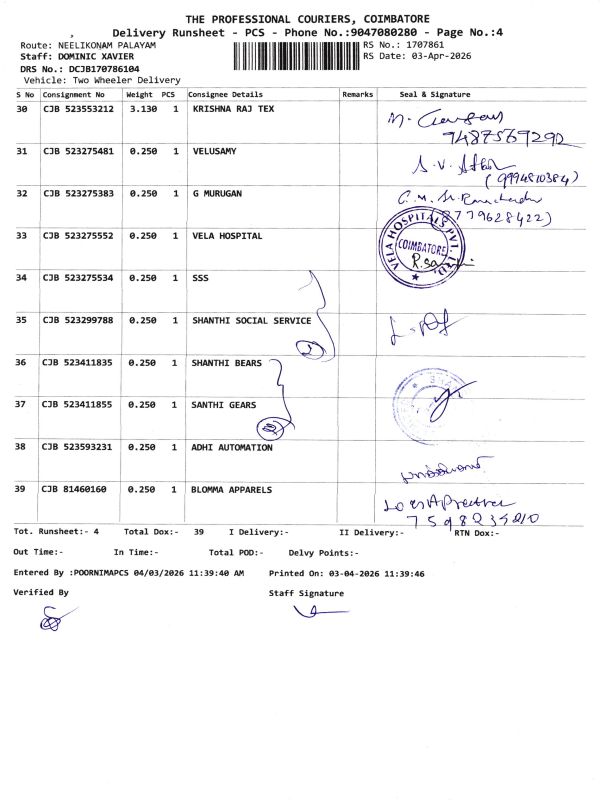 THE PROFESSIONAL COURIERS, COIMBATORE
Delivery Runsheet - PCS - Phone No.:9047080280 - Page No.:4
Route: NEELIKONAM PALAYAM
RS No.: 1707861
Staff: DOMINIC XAVIER
RS Date: 03-Apr-2026
DRS No.: DCJB170786104
Vehicle: Two Wheeler Delivery
S No Consignment No Weight PCS Consignee Details Remarks Seal & Signature
30 CJB 523553212 3.130 1 KRISHNA RAJ TEX
9487569292
31 CJB 523275481 0.250 1 VELUSAMY
(9994810384)
32 CJB 523275383 0.250 1 G MURUGAN
33 CJB 523275552 0.250 1 VELA HOSPITAL
VELA HOSPITALS PVT. LTD.
COIMBATORE
34 CJB 523275534 0.250 1 SSS
35 CJB 523299788 0.250 1 SHANTHI SOCIAL SERVICE
2
36 CJB 523411835 0.250 1 SHANTHI BEARS
37 CJB 523411855 0.250 1 SANTHI GEARS
2
38 CJB 523593231 0.250 1 ADHI AUTOMATION
39 CJB 81460160 0.250 1 BLOMMA APPARELS
Tot. Runsheet:- 4 Total Dox:- 39 I Delivery:- II Delivery:- RTN Dox:-
Out Time:- In Time:- Total POD:- Delvy Points:-
Entered By :POORNIMAPCS 04/03/2026 11:39:40 AM Printed On: 03-04-2026 11:39:46
Verified By Staff Signature